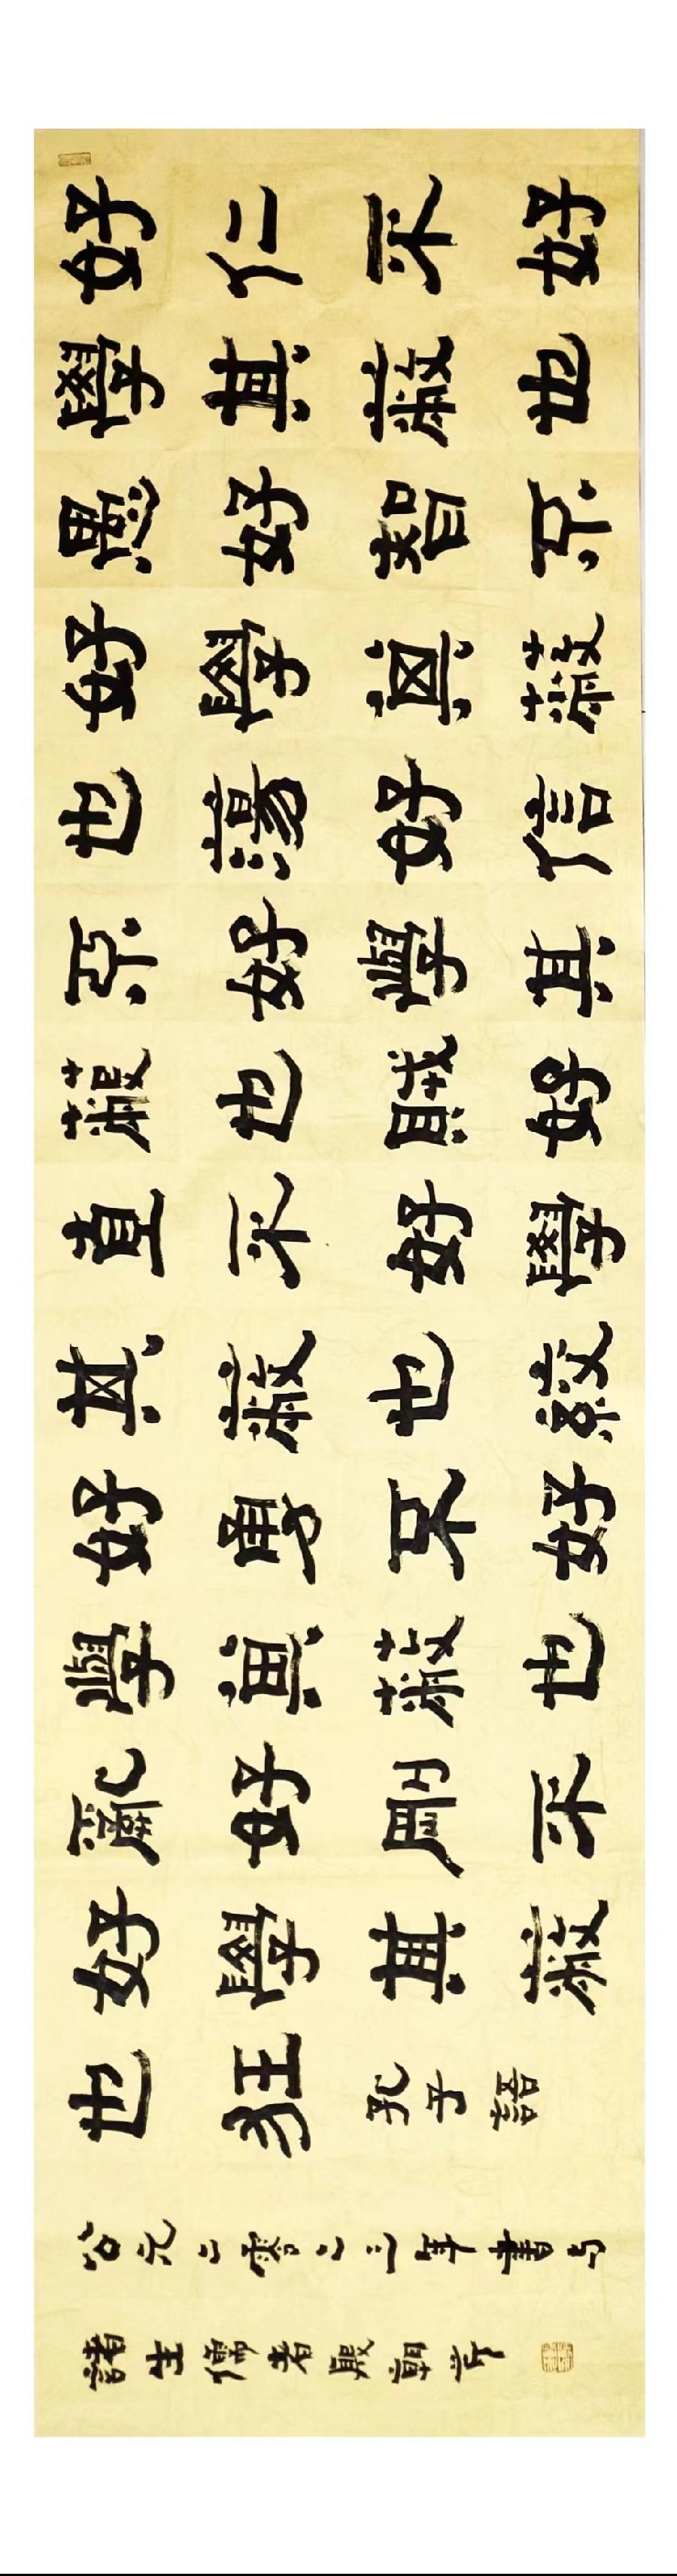 好仁不好
學其蔽也
愚好智不
好學其蔽
也蕩好信
不好學其
蔽也賊好
直不好學
其蔽也絞
好勇不好
學其蔽也
亂好剛不
好學其蔽
也狂
孔子語
公元二零二三年書于
諸生儒者殿朝